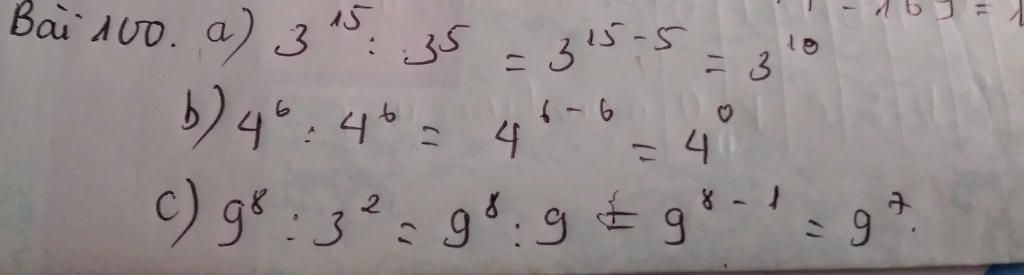 - 169 = 1
Bài 100. a) 3¹⁵ : 3⁵ = 3¹⁵⁻⁵ = 3¹⁰
b) 4⁶ : 4⁶ = 4⁶⁻⁶ = 4⁰
c) 9⁸ : 3² = 9⁸ : 9 = 9⁸⁻¹ = 9⁷.